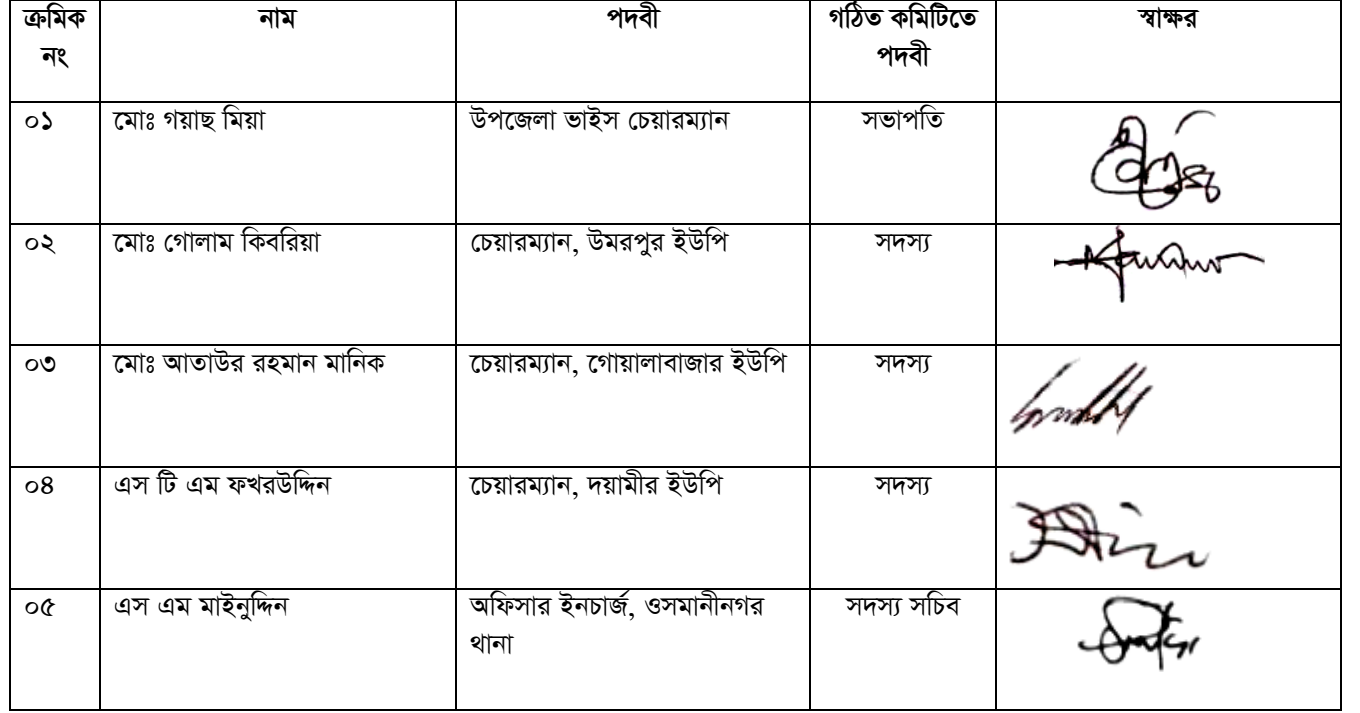 ক্রমিক নাম পদবী গঠিত কমিটিতে স্বাক্ষর
নং পদবী
০১ মোঃ গয়াছ মিয়া উপজেলা ভাইস চেয়ারম্যান সভাপতি
০২ মোঃ গোলাম কিবরিয়া চেয়ারম্যান, উমরপুর ইউপি সদস্য
০৩ মোঃ আতাউর রহমান মানিক চেয়ারম্যান, গোয়ালাবাজার ইউপি সদস্য
০৪ এস টি এম ফখরউদ্দিন চেয়ারম্যান, দয়ামীর ইউপি সদস্য
০৫ এস এম মাইনুদ্দিন অফিসার ইনচার্জ, ওসমানীনগর সদস্য সচিব
থানা